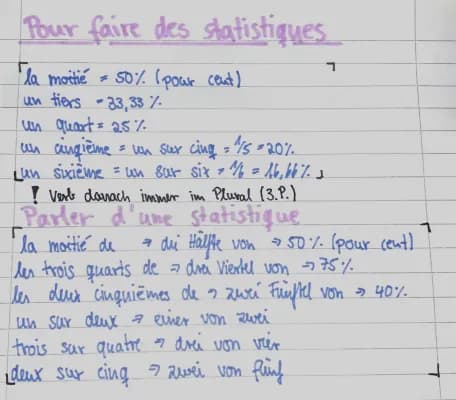 Pour faire des statistiques
la moitié = 50% (pour cent)
un tiers = 33,33 %
un quart = 25%
un cinquième = un sur cinq = 1/5 = 20%
un sixième = un sur six = 1/6 = 16,66%
! Verb danach immer im Plural (3.P.)
Parler d'une statistique
la moitié de → die Hälfte von → 50% (pour cent)
les trois quarts de → drei Viertel von → 75%
les deux cinquièmes de → zwei Fünftel von → 40%
un sur deux → einer von zwei
trois sur quatre → drei von vier
deux sur cinq → zwei von fünf